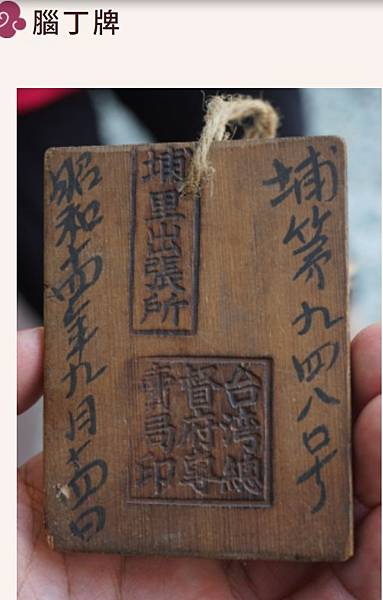 腦丁牌
埔第九四八号
埔里出張所
台湾總
督府專
賣局印
昭和十四年九月十四日